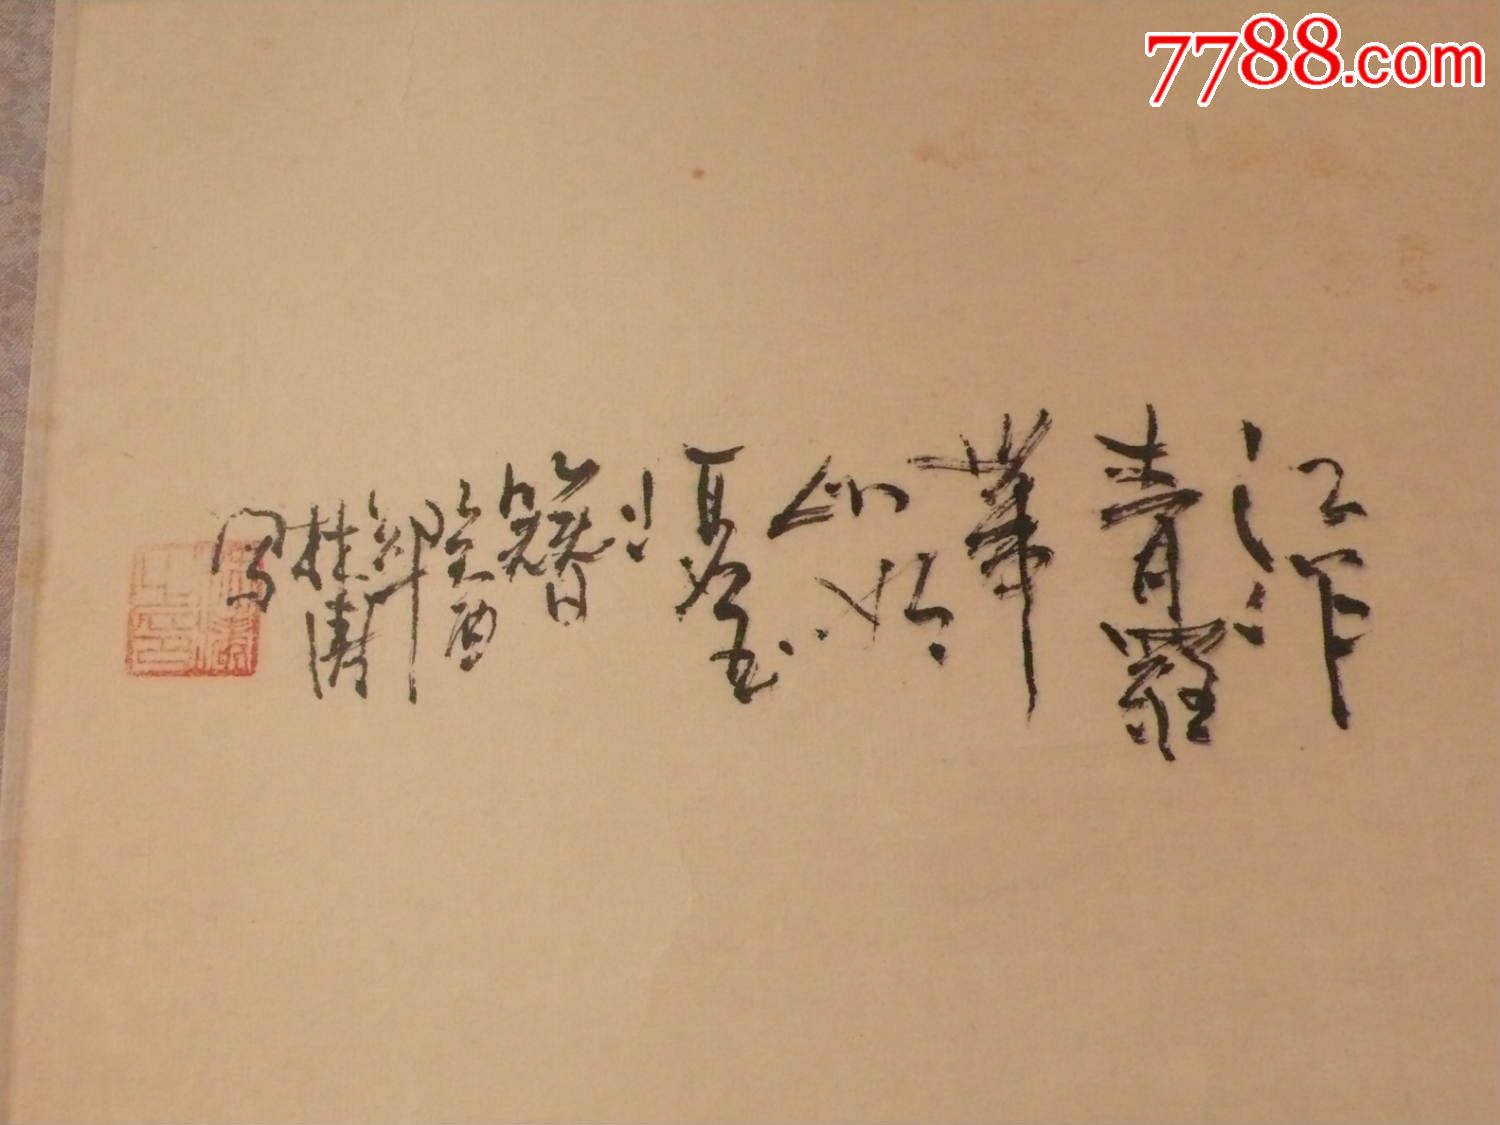 7788.com
江作
青羅
帶
山如
碧玉
簪
癸酉
桂濤
写